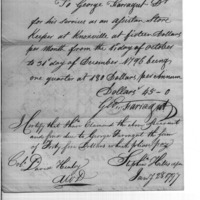 To George Farragut Dr
for his services as an assistant Store
Keeper at Knoxville at fifteen Dollars
per Month from the 1st day of October
to 31st day of December 1796 being
one quarter at 180 Dollars per annum
Dollars 45 - 0
Geo Farragut
I Certify that
the above
and from due to George Farragut the sum
of Forty five Dollars which please pay
Col. David Henley
Jany 28 1797